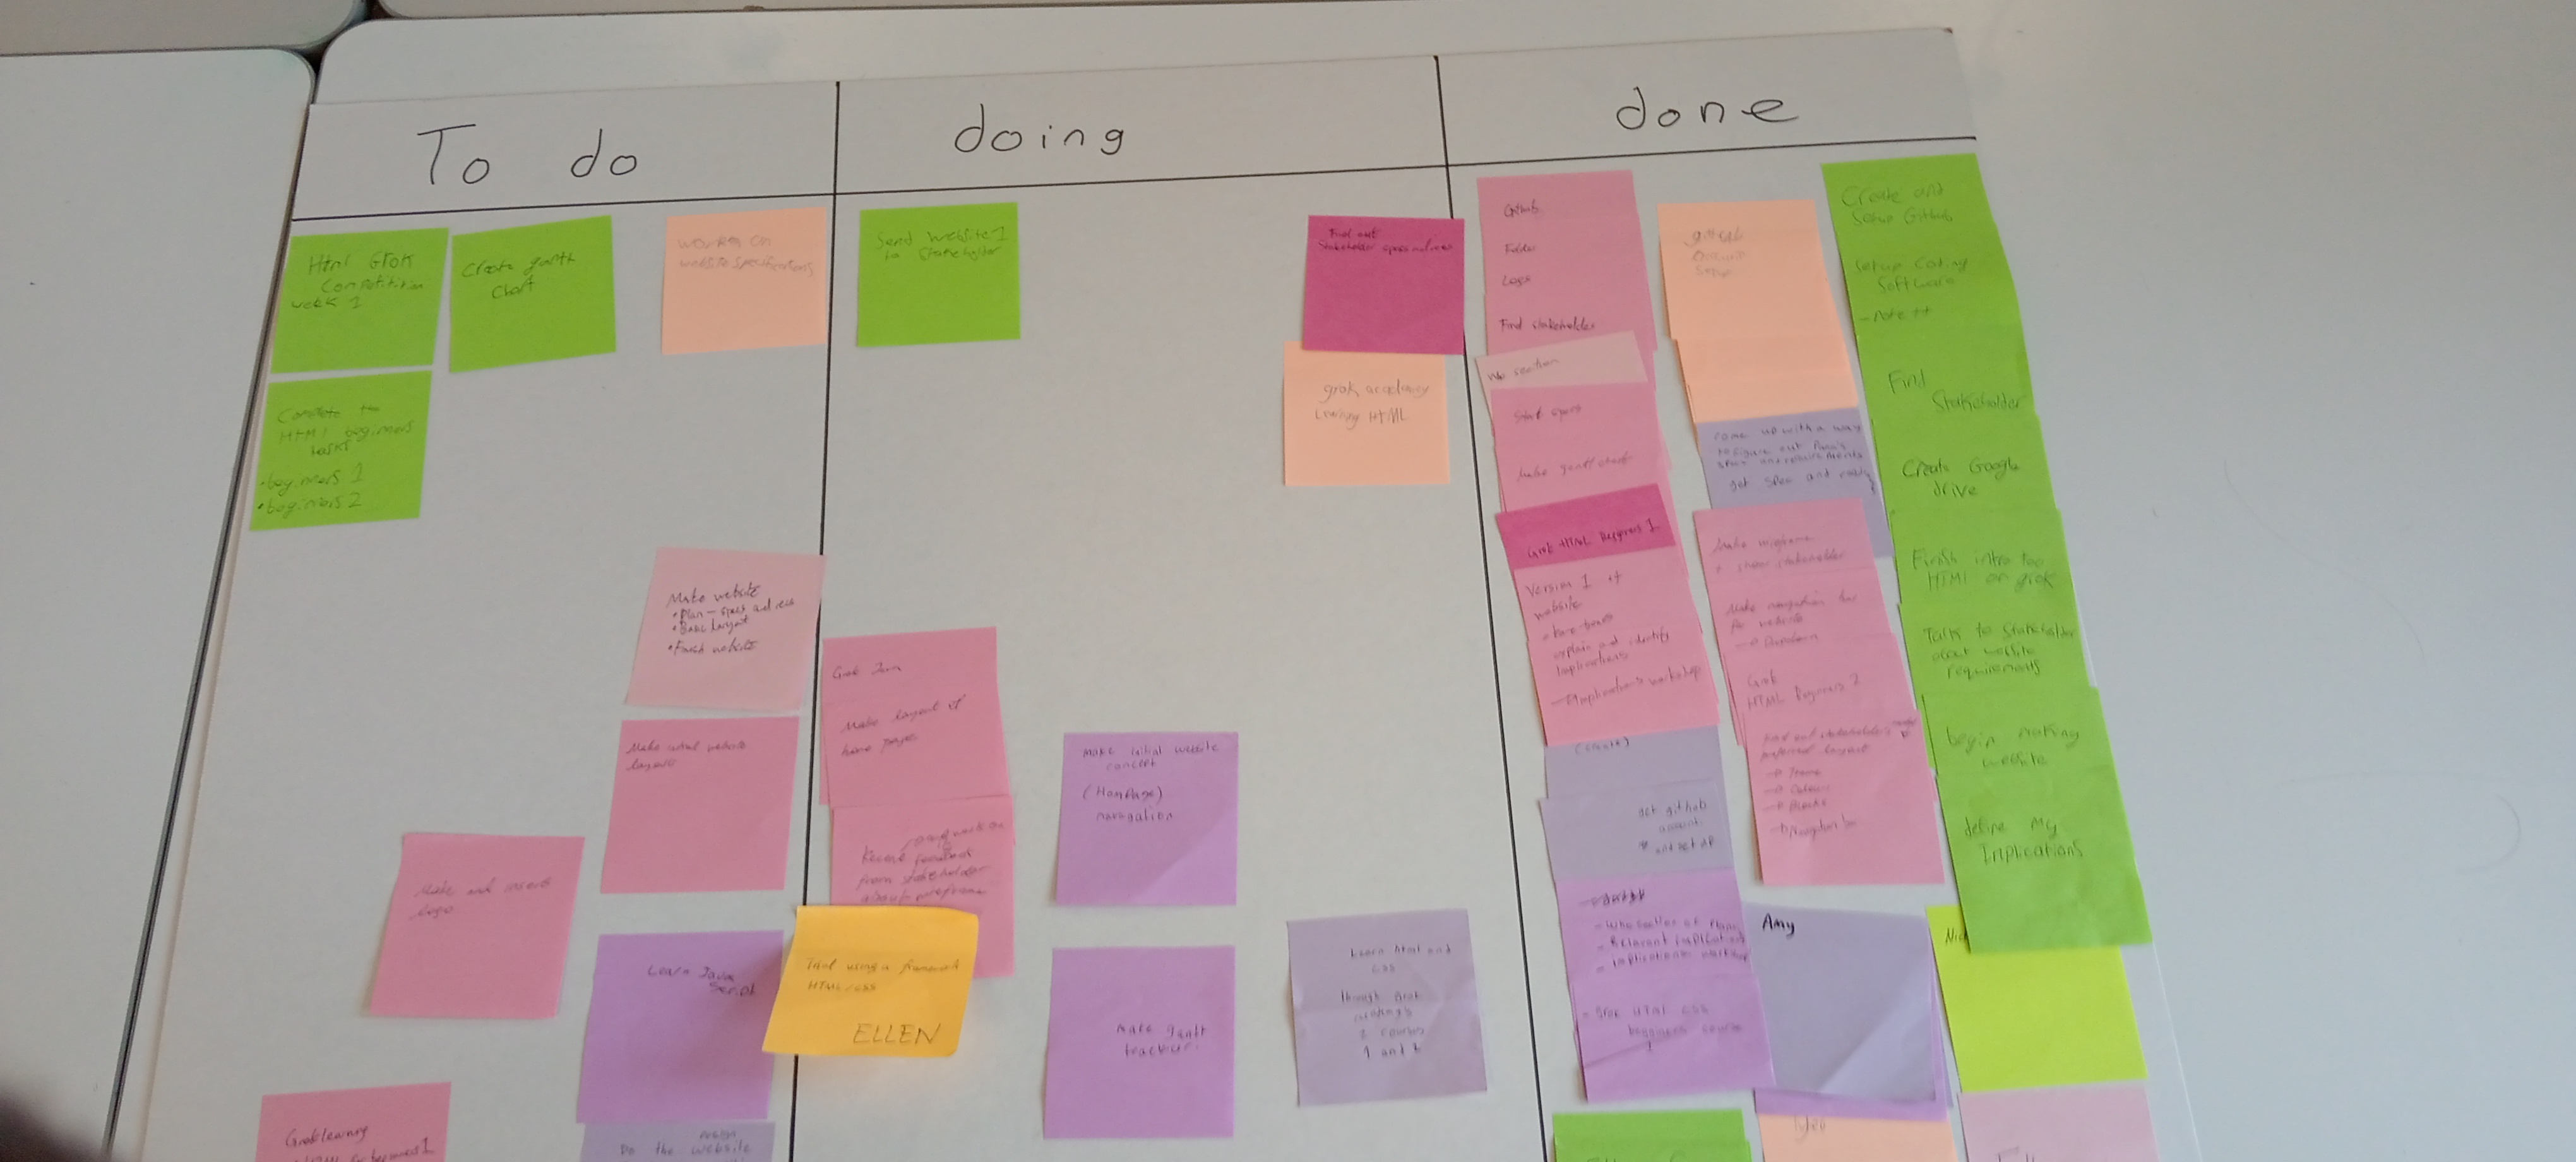 To do
doing
done
Html Grok
Competition
week 1
Create ganth
Chart
worken on
website specifications
Complete the
HTML beginners
tasks
• beginners 1
• beginners 2
Make website
• Plan - specs and
• Basic layout
• Finish website
Make initial website
layout
Make and insert
logo
Learn Java
Script
Grok learning
Do the website
Send Website 1
to Stakeholder
Find out
Stakeholder specs
grok academy
Learning HTML
Grok Java
Make layout of
home page
Receive feedback
from stakeholder
about wireframe
Trial using a framework
HTML css
ELLEN
make initial website
concept
(Homepage)
navagation
Make gantt
Learn html and
css
through Grok
2 courses
1 and 2
Github
Folder
Logs
Find stakeholder
We section
Start specs
Make gantt chart
Grok HTML Beginners 1
Version 1 of
website
explain and identify
implications
Implications workshop
(create)
get github
account
and set up
- Relevant implications
- implications workshop
- Grok HTML CSS
beginners course
1
github
setup
come up with a way
to figure out
get spec and
Make wireframe
Make navigation bar
for website
Grok
HTML Beginners 2
Find out stakeholder's
preferred layout
→ Theme
→ Colour
→ Blocks
Amy
Create and
Setup Github
Setup Coding
Software
- note ++
Find
Stakeholder
Create Google
drive
Finish intro too
HTML on grok
Talk to Stakeholder
about website
requirements
begin making
website
define My
Implications